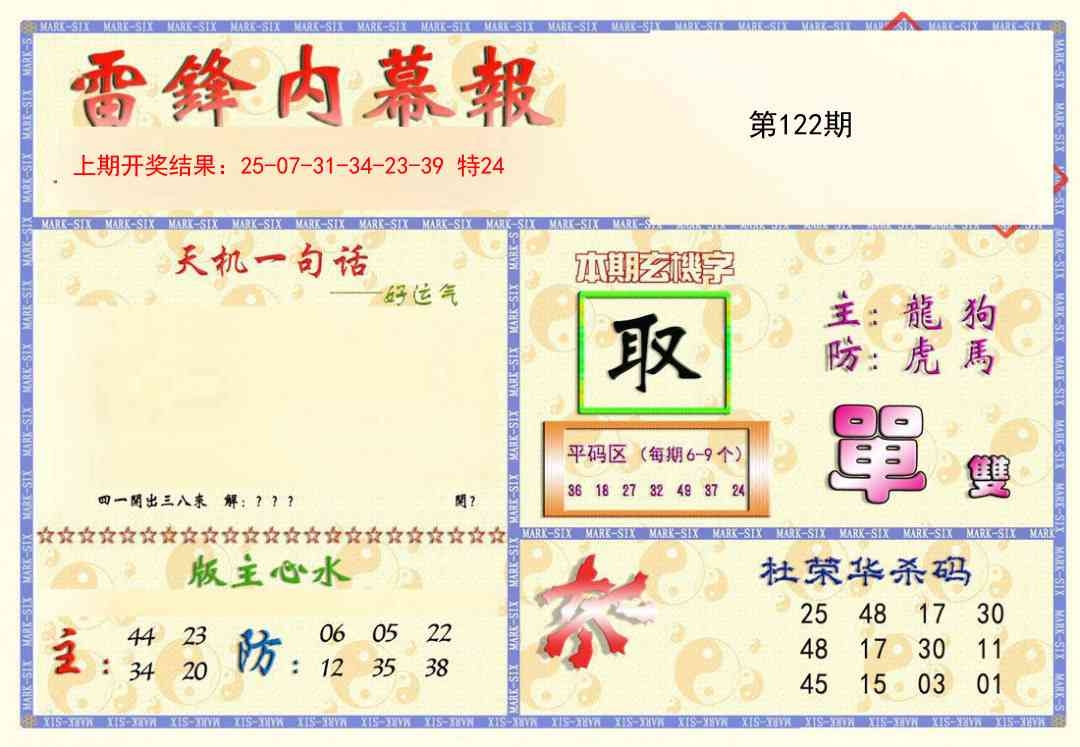 雷鋒内幕報
第122期
上期开奖结果：25-07-31-34-23-39 特24
天机一句话
——好运气
四一開出三八来 解：？？？ 開？
版主心水
主：
44 23
34 20
防：
06 05 22
12 35 38
本期玄機字
取
平码区（每期6-9个）
36 18 27 32 49 37 24
主：龍 狗
防：虎 馬
單 雙
杀
杜荣华杀码
25 48 17 30
48 17 30 11
45 15 03 01
MARK-SIX